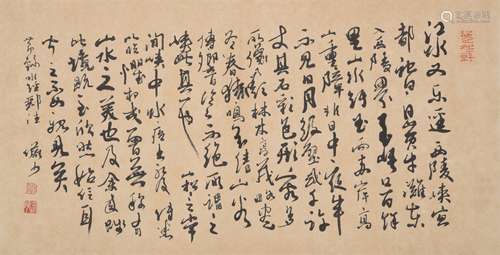 江水又東逕西陵峽宜
都記曰自黃牛灘東
入西陵界至峽口百許
里山水紆曲而兩岸高
山重障非日中夜半
不見日月絕壁或千許
丈其石彩色形容多
所像類林木高茂略盡
冬春猿鳴至清山谷
傳響泠泠不絕所謂三
峽此其一也山松言常
聞峽中水疾書記及口傳悉
以臨懼相戒曾無稱有
山水之美也及余來踐躋
此境既至欣然始信耳
聞之不如親見矣
節錄水經酈注 儼少